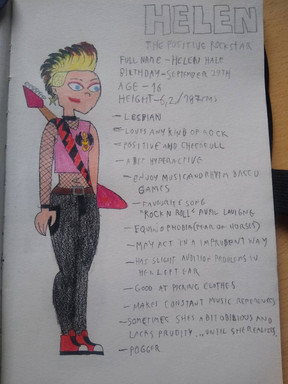 HELEN
THE POSITIVE ROCKSTAR
FULL NAME - HELEN HALE
BIRTHDAY - SEPTEMBER 29TH
AGE - 16
HEIGHT - 6,2 /
- LESBIAN
- LOVES ANY KIND OF ROCK
- POSITIVE AND CHEERFULL
- A BIT HYPERACTIVE
- ENJOY MUSIC AND RHYTHM BASED
GAMES
- FAVOURITE SONG
"ROCK N ROLL" AVRIL LAVIGNE
- EQUINOPHOBIA (FEAR OF HORSES)
- MAY ACT IN A IMPRUDENT WAY
- HAS SLIGHT AUDITION PROBLEMS IN
HER LEFT EAR
- GOOD AT PICKING CLOTHES
- MAKES CONSTANT MUSIC REFERENCES
- SOMETIMES SHE'S A BIT OBLIVIOUS AND
LACKS ... UNTIL SHE REALIZES
- POGGER